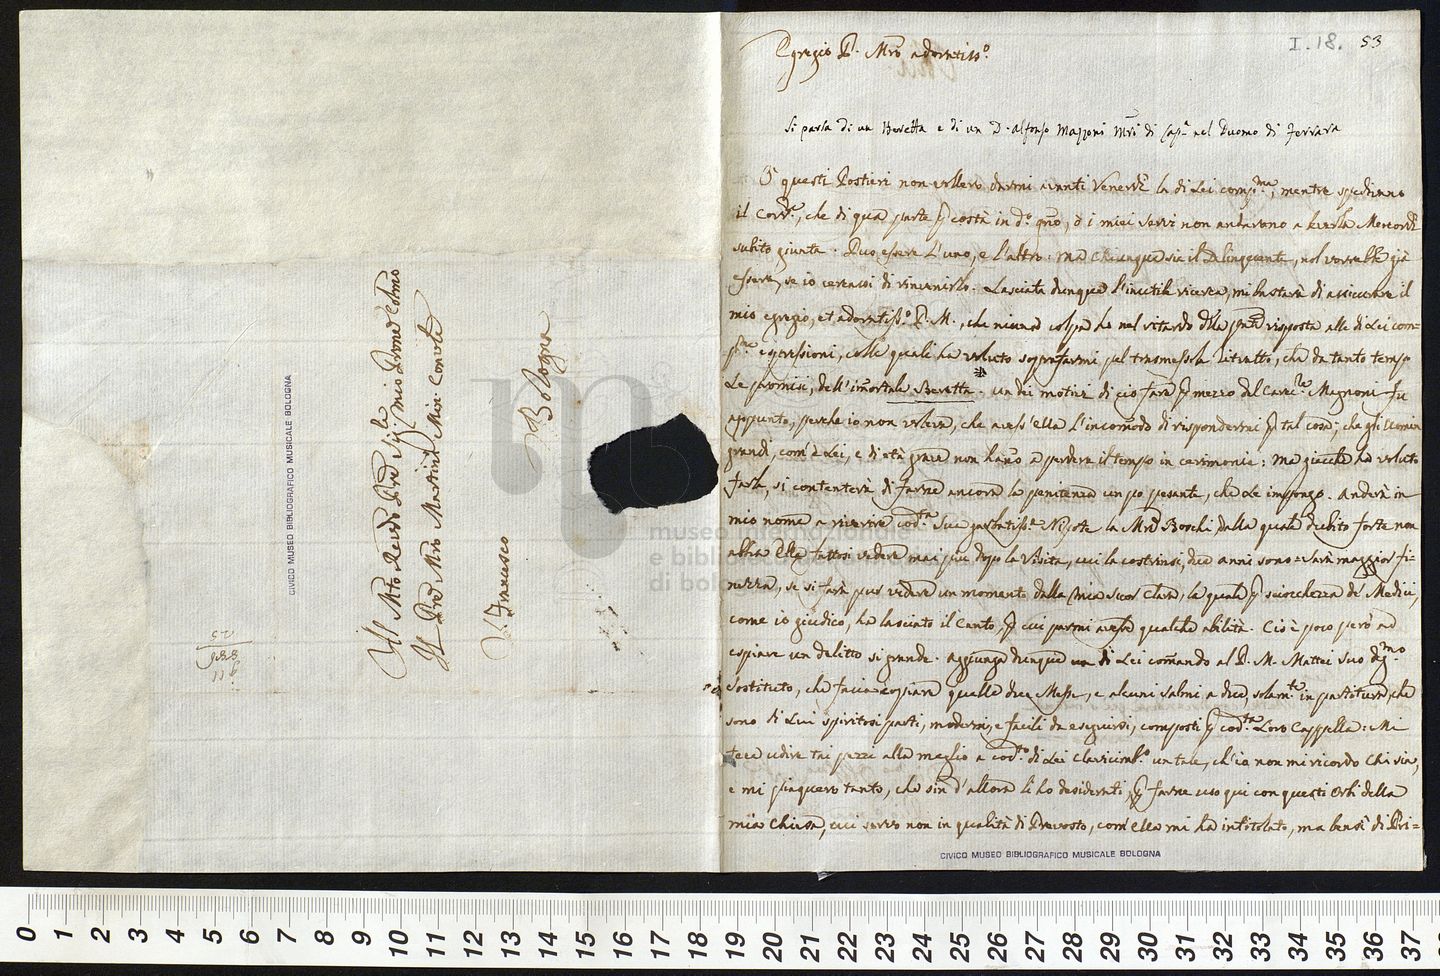 I.18. 53
Egregio P. Mro adoratiss.o
Si parla di un Beretta e di un D. Alfonso Mazzoni Mro di Cap.a nel Duomo di Ferrara
O questi Postieri non vollero darmi avanti Venerdì la di Lei comp.ma, mentre spedirono
il Corr.e, che di qua parte p costà in d.o gno, ò i miei servi non andarono a levarla Mercordì
subito giunta. Può essere l'uno, e l'altro: ma chiunque sia il Delinquente, nol vorrebbe già
essere, se io cercassi di rinvenirlo. Lasciata dunque l'inutile ricerca, mi basterà di assicurare il
mio egregio, et adoratiss.o P. M., che niuna colpa ha nel ritardo della pnte risposta alle di Lei com=
p.me espressioni, colle quali ha voluto soprafarmi pel trasmessole Ritratto, che da tanto tempo
Le promisi, dell'immortale Beretta. un dei motivi di ciò fare p mezzo del Canc.re Magnoni fu
appunto, perche io non voleva, che avess'ella l'incomodo di rispondermi p tal cosa; che gli Uomin
grandi, com'è Lei, e di età grave non hanno a perdere il tempo in cerimonie: ma giacche ha voluto
farlo, si contenterà di farne ancora la penitenza un po pesante, che Le impongo. Anderà in
mio nome a riverire cod.ta Sua garbatiss.a Nipote la Mre Boschi, dalla quale dubito forte non
abbia Ella fattosi vedere mai più dopo la Visita, cui la costrinsi, due anni sono = Sarà maggior fi=
nezza, se si farà pur vedere un momento dalla mia Suor Clara, la quale p sciocchezza de' Medici,
come io giudico, ha lasciato il Canto, p cui parmi avesse qualche abilità. Ciò è poco però ad
espiare un delitto si grande. Aggiunga dunque un di Lei comando al P. M. Mattei suo dg.mo
Sostituto, che faccia copiare quelle due Messe, e alcuni salmi a due, solam.te in partitura, che
sono di Lui spiritosi parti, moderni, e facili da eseguirsi, composti p cod.ta Loro Cappella: Mi
fece udire tai pezzi alla meglio a cod.to di Lei Clavicimb.o un tale, ch'io non mi ricordo chi sia,
e mi piacquero tanto, che sin d'allora li ho desiderati, p farne uso qui con questi Orbi della
mia Chiesa, cui servo non in qualità di Prevosto, com'ella mi ha intitolato, ma bensì di Pri=
CIVICO MUSEO BIBLIOGRAFICO MUSICALE BOLOGNA
Al Mto Revdo Pre Sig.
mio Prone Colmo
Il Pre Mro Martini Min: Convle
S. Francesco
Bologna
CIVICO MUSEO BIBLIOGRAFICO MUSICALE BOLOGNA
museo internazionale
e biblioteca della musica
di bologna
0 1 2 3 4 5 6 7 8 9 10 11 12 13 14 15 16 17 18 19 20 21 22 23 24 25 26 27 28 29 30 31 32 33 34 35 36 37